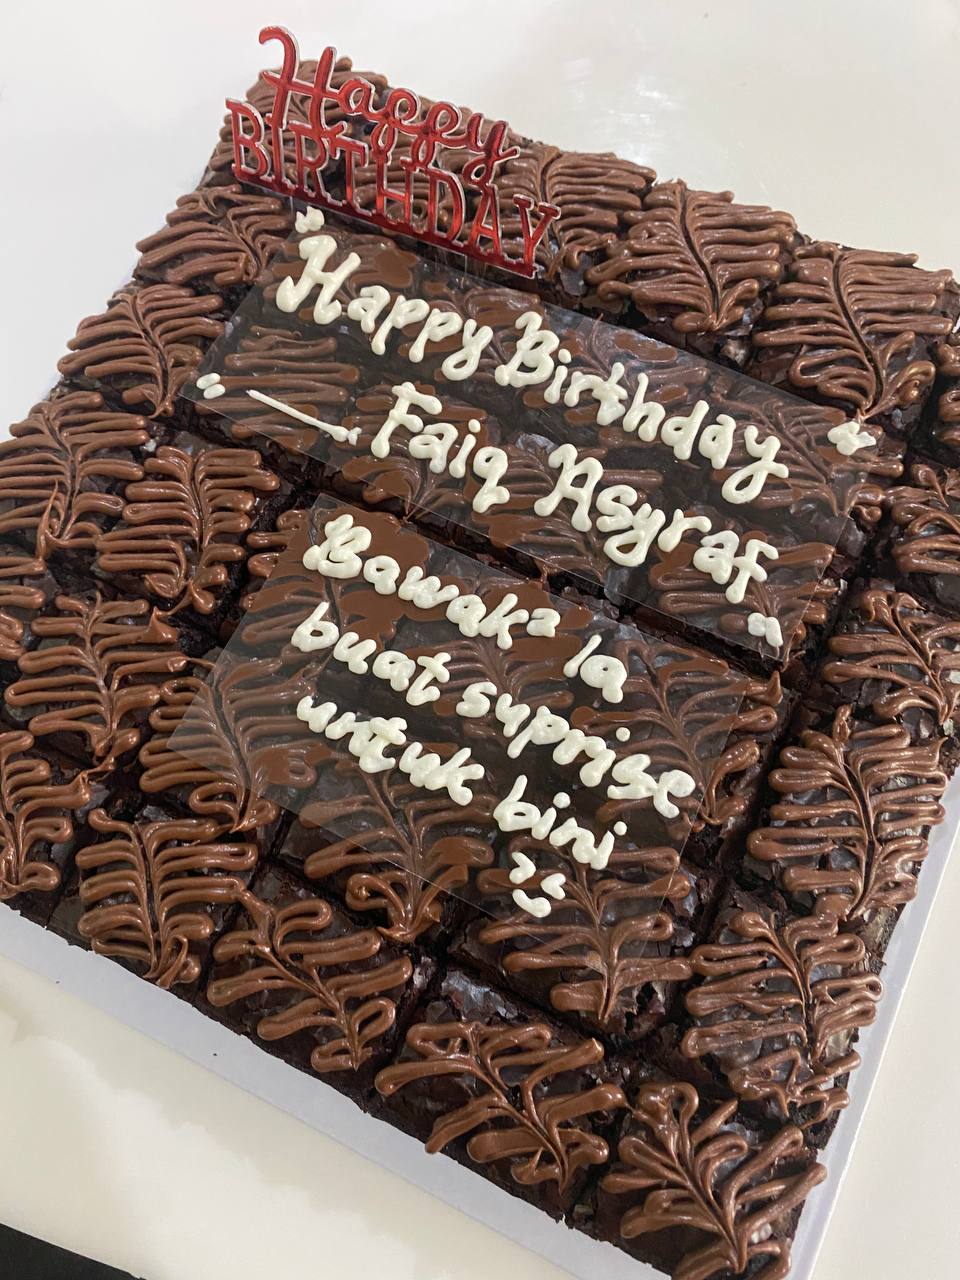 Happy
BIRTHDAY
Happy Birthday
" — Faiq Asyraf "
Bawak² la
buat suprise
untuk bini